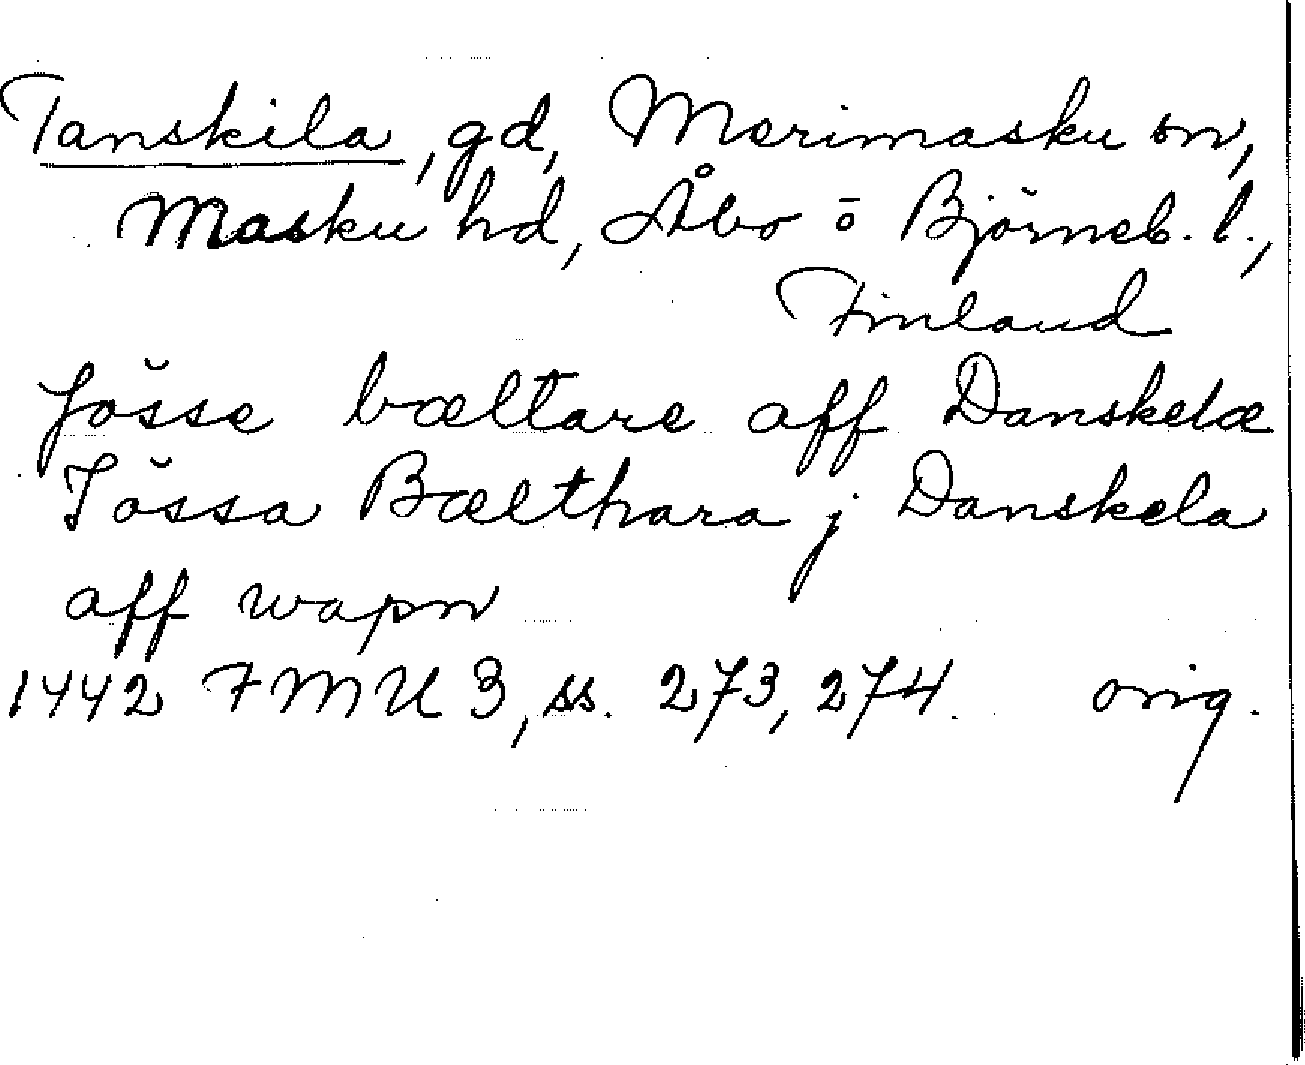 Tanskila, gd, Merimasku sn,
Masku hd, Åbo o Björneb. l.,
Finland
Jösse bæltare aff Danskelæ
Jössa Bælthara j Danskela
aff wapn
1442 FMU 3, ss. 273, 274. orig.